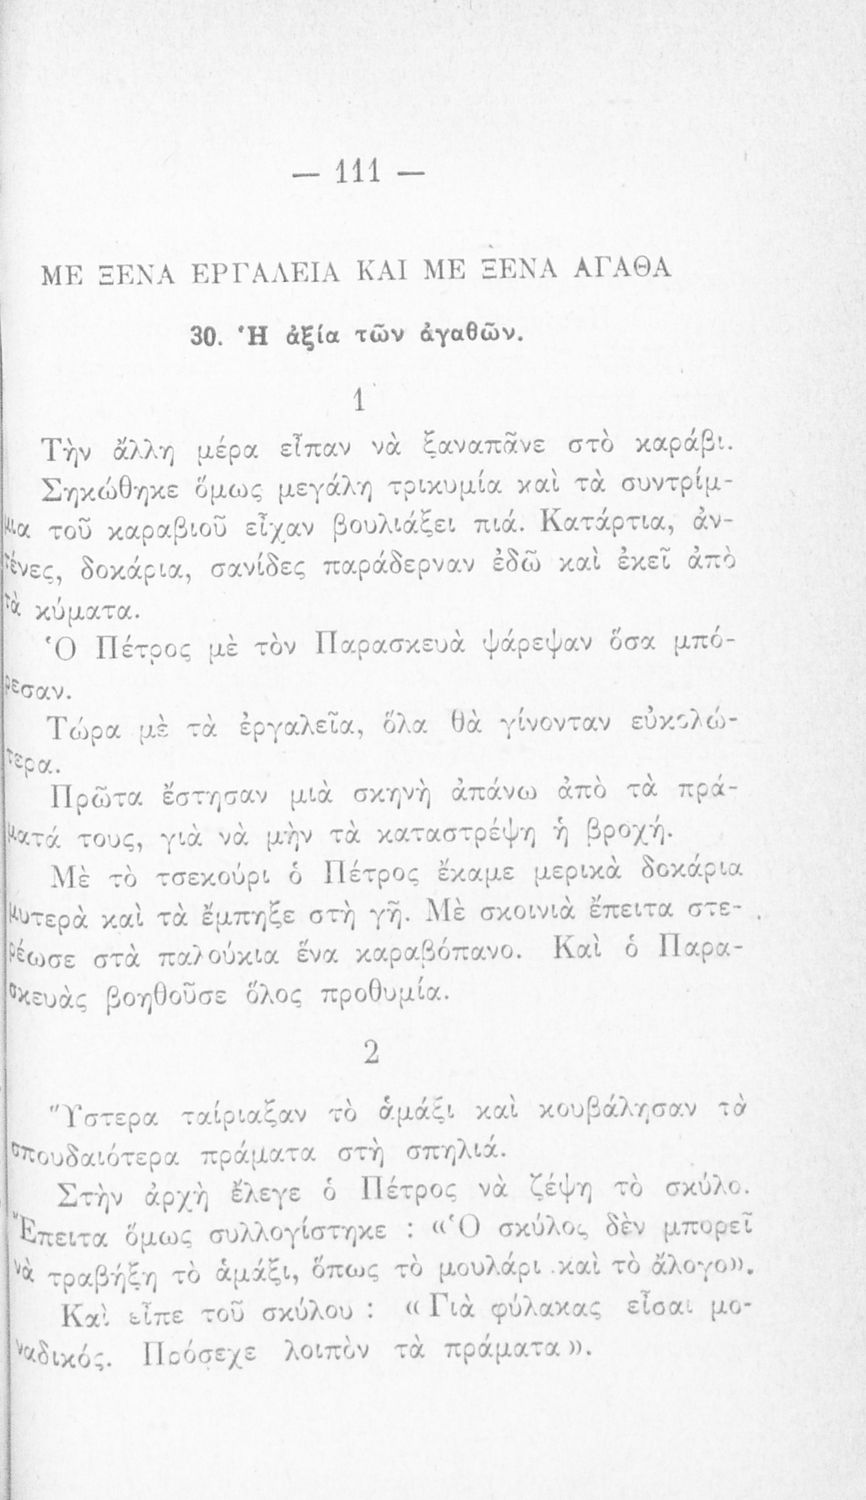 — 111 —
ΜΕ ΞΕΝΑ ΕΡΓΑΛΕΙΑ ΚΑΙ ΜΕ ΞΕΝΑ ΑΓΑΘΑ
30. Ἡ ἀξία τῶν ἀγαθῶν.
1
Τὴν ἄλλη μέρα εἶπαν νὰ ξαναπᾶνε στὸ καράβι.
Σηκώθηκε ὅμως μεγάλη τρικυμία καὶ τὰ συντρίμ-
μια τοῦ καραβιοῦ εἶχαν βουλιάξει πιά. Κατάρτια, ἀν-
τένες, δοκάρια, σανίδες παράδερναν ἐδῶ καὶ ἐκεῖ ἀπὸ
τὰ κύματα.
Ὁ Πέτρος μὲ τὸν Παρασκευὰ ψάρεψαν ὅσα μπό-
ρεσαν.
Τώρα μὲ τὰ ἐργαλεῖα, ὅλα θὰ γίνονταν εὐκολώ-
τερα.
Πρῶτα ἔστησαν μιὰ σκηνὴ ἀπάνω ἀπὸ τὰ πρά-
ματά τους, γιὰ νὰ μὴν τὰ καταστρέψη ἡ βροχή.
Μὲ τὸ τσεκούρι ὁ Πέτρος ἔκαμε μερικὰ δοκάρια
μυτερὰ καὶ τὰ ἔμπηξε στὴ γῆ. Μὲ σκοινιὰ ἔπειτα στε-
ρέωσε στὰ παλούκια ἕνα καραβόπανο. Καὶ ὁ Παρα-
σκευὰς βοηθοῦσε ὅλος προθυμία.
2
Ὕστερα ταίριαξαν τὸ ἁμάξι καὶ κουβάλησαν τὰ
σπουδαιότερα πράματα στὴ σπηλιά.
Στὴν ἀρχὴ ἔλεγε ὁ Πέτρος νὰ ζέψη τὸ σκύλο.
Ἔπειτα ὅμως συλλογίστηκε : «Ὁ σκύλος δὲν μπορεῖ
νὰ τραβήξη τὸ ἁμάξι, ὅπως τὸ μουλάρι καὶ τὸ ἄλογο».
Καὶ εἶπε τοῦ σκύλου : «Γιὰ φύλακας εἶσαι μο-
ναδικός. Πρόσεχε λοιπὸν τὰ πράματα».